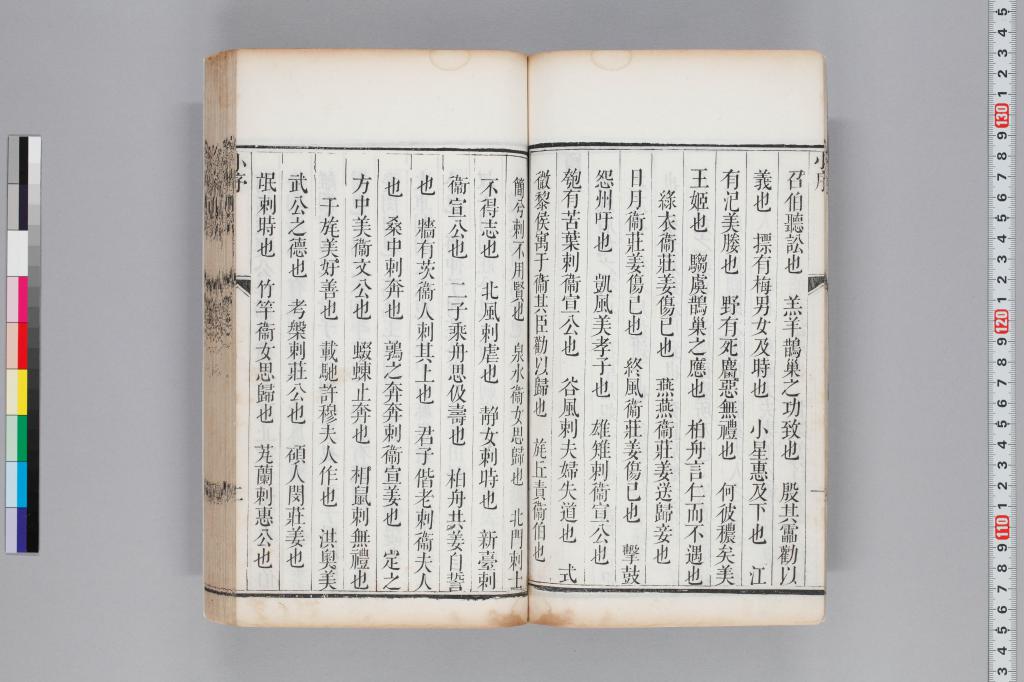 召伯聽訟也　羔羊鵲巢之功致也　殷其靁勸以
義也　摽有梅男女及時也　小星惠及下也　江
有汜美媵也　野有死麕惡無禮也　何彼穠矣美
王姬也　騶虞鵲巢之應也　柏舟言仁而不遇也
綠衣衞莊姜傷已也　燕燕衞莊姜送歸妾也
日月衞莊姜傷已也　終風衞莊姜傷已也　擊鼓
怨州吁也　凱風美孝子也　雄雉刺衞宣公也
匏有苦葉刺衞宣公也　谷風刺夫婦失道也　式
微黎侯寓于衞其臣勸以歸也　旄丘責衞伯也
簡兮刺不用賢也　泉水衞女思歸也　北門刺士
不得志也　北風刺虐也　靜女刺時也　新臺刺
衞宣公也　二子乘舟思伋壽也　柏舟共姜自誓
也　牆有茨衞人刺其上也　君子偕老刺衞夫人
也　桑中刺奔也　鶉之奔奔刺衞宣姜也　定之
方中美衞文公也　蝃蝀止奔也　相鼠刺無禮也
干旄美好善也　載馳許穆夫人作也　淇奧美
武公之德也　考槃刺莊公也　碩人閔莊姜也
氓刺時也　竹竿衞女思歸也　芄蘭刺惠公也
小序
二